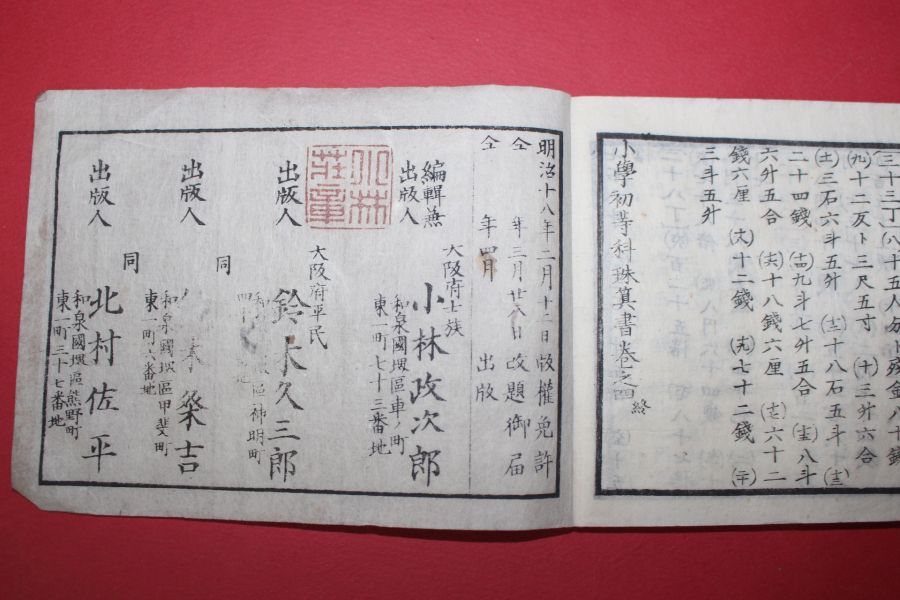 三十三丁(八十五人分ト残金八十錢
(九)十二反ト三尺五寸 (十)三升六合
(土)三石六斗五升 (圭)十八石五斗 (圭)
二十四錢 (圭)九斗七升五合 (圭)八斗
六升五合 (共)十八錢六厘 (圭)六十二
錢六厘 (大)十二錢 (丸)七十二錢 (二十)
三斗五升
小學初等科珠算書卷之四 終
明治十八年二月十二日版權免許
仝 年三月廿八日改題御届
仝 年四月 出版
編輯兼
出版人
大阪府士族
小林政次郎
和泉國堺區車ノ町
東一町七十三番地
小林
莊章
出版人
大阪府平民
鈴木久三郎
區神明町
出版人
同
桒吉
和泉國堺區甲斐町
東一町六番地
出版人
同
北村佐平
和泉國堺區熊野町
東一町三十七番地